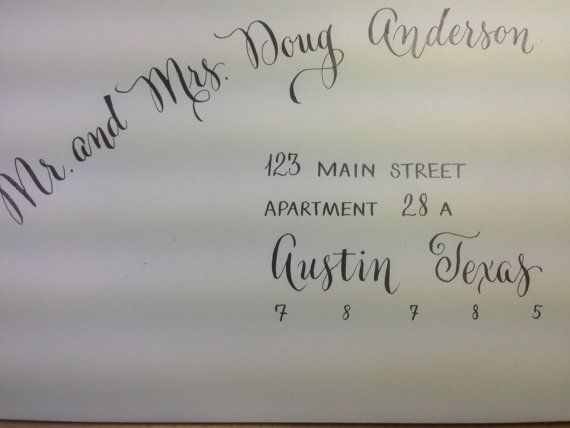 Mr. and Mrs. Doug Anderson
123 MAIN STREET
APARTMENT 28 A
Austin Texas
7 8 7 8 5